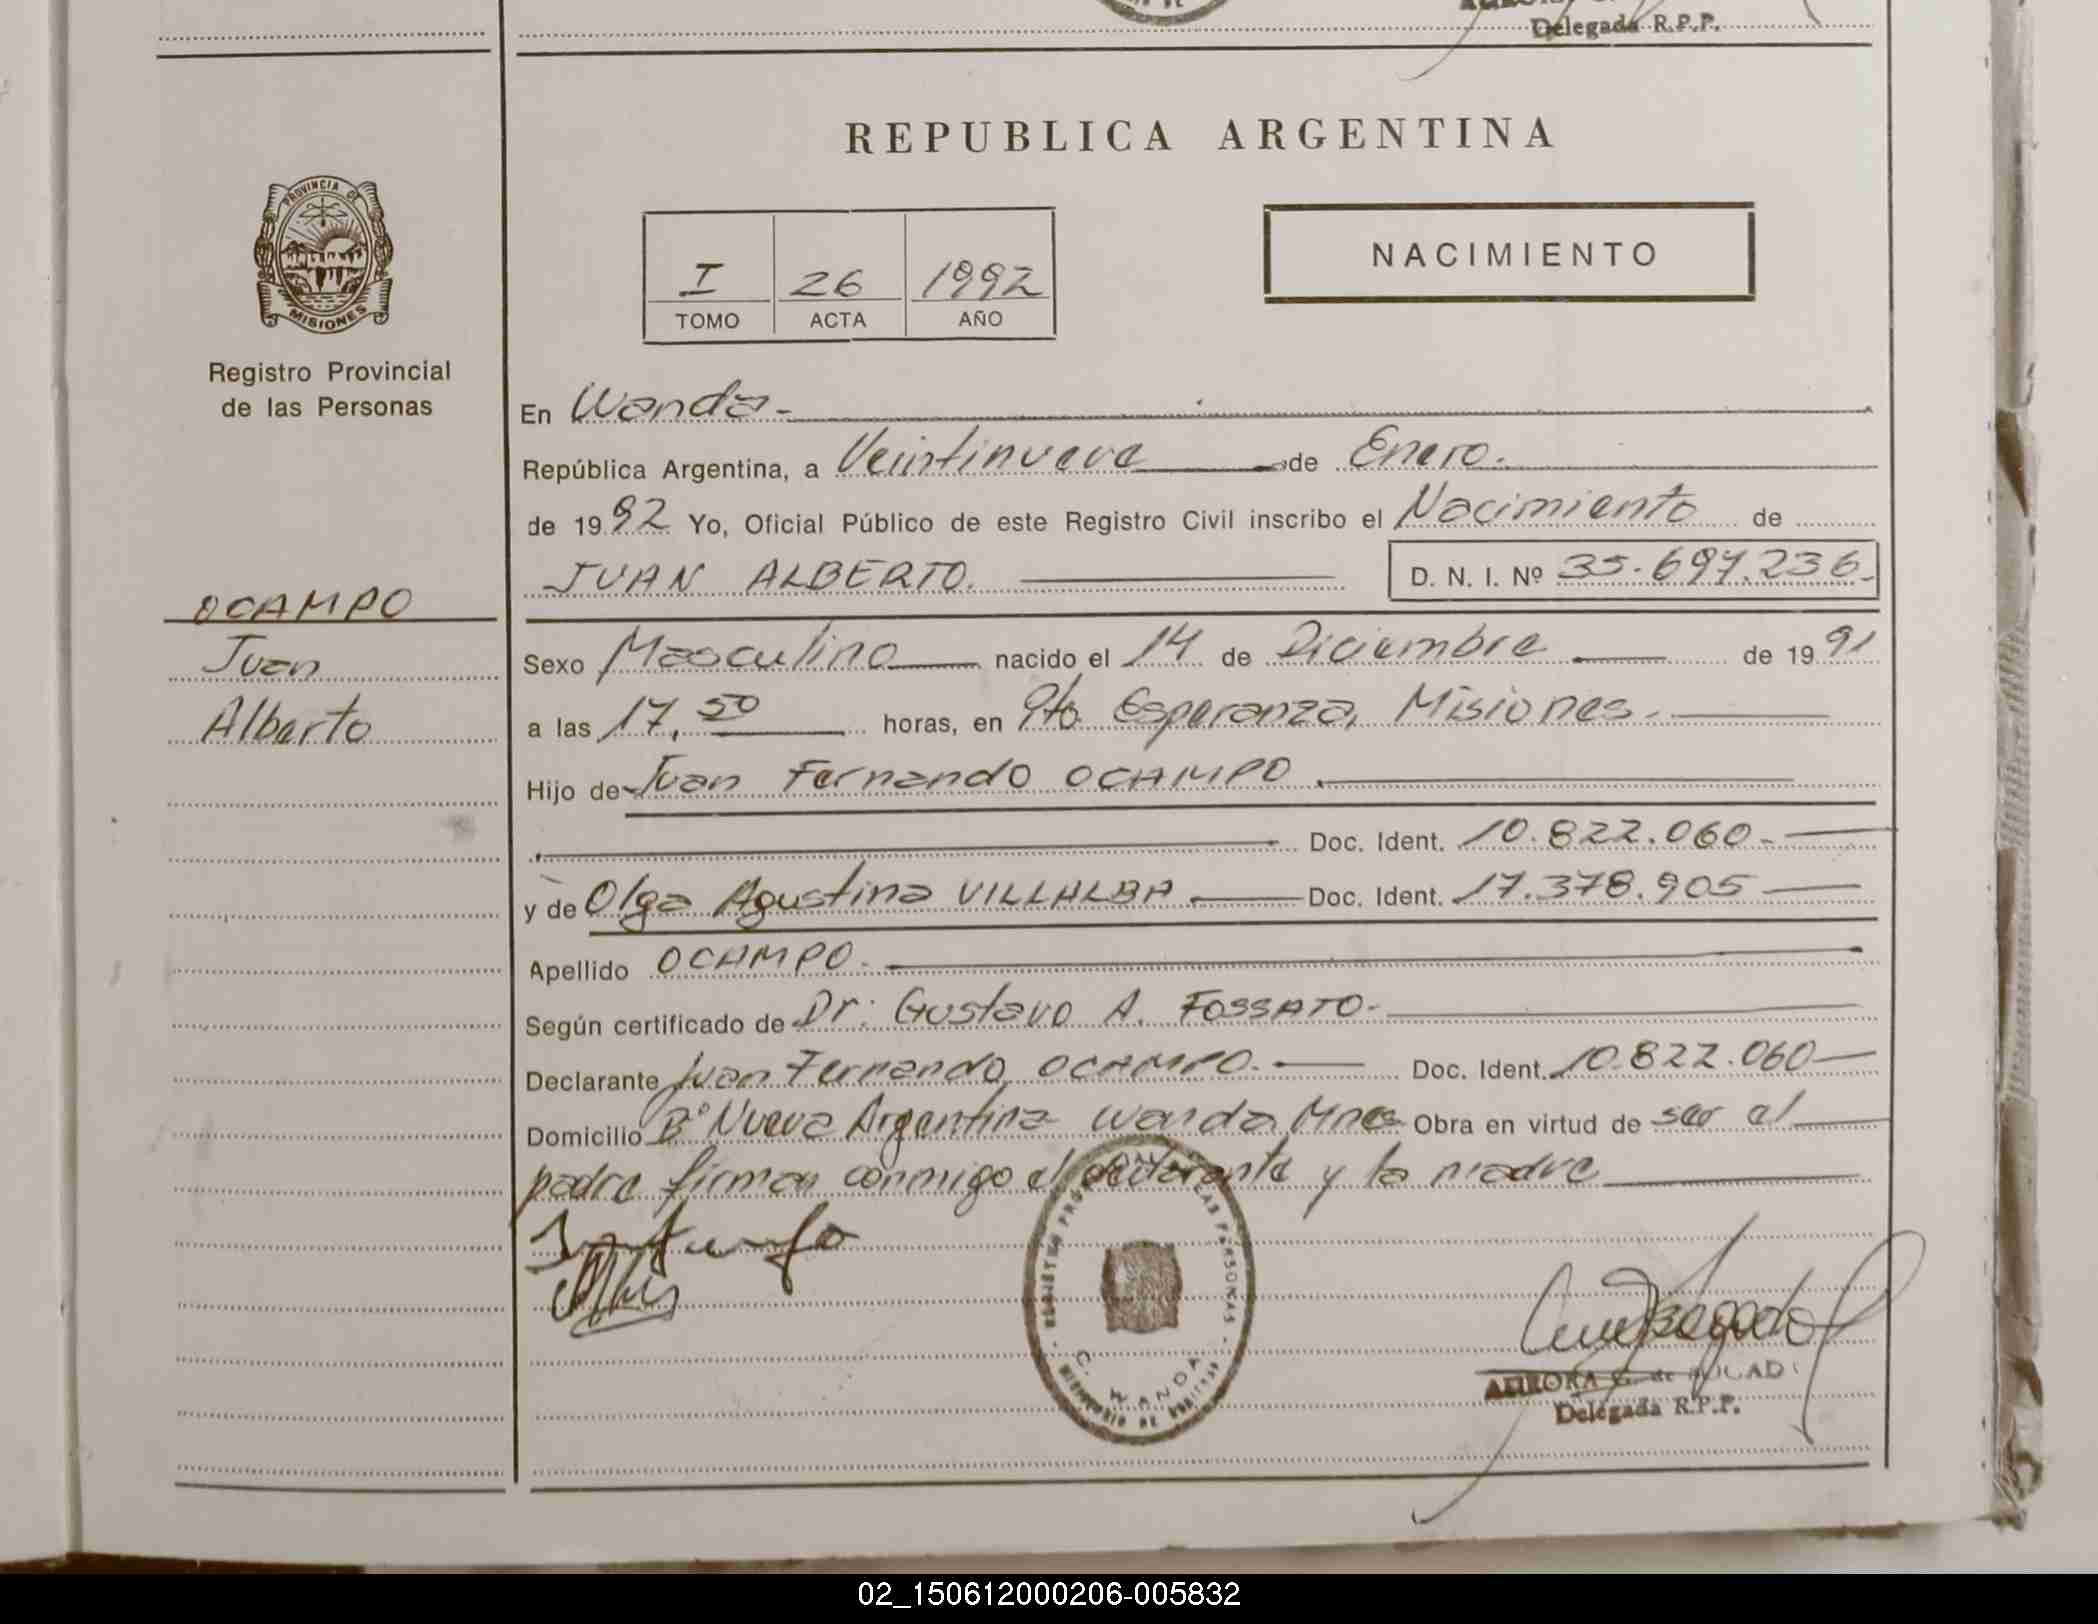 Delegada R.P.P.
REPUBLICA ARGENTINA
PROVINCIA DE
MISIONES
Registro Provincial
de las Personas
I 26 1992
TOMO ACTA AÑO
NACIMIENTO
OCAMPO
Juan
Alberto
En Wanda.-
República Argentina, a Veintinueve de Enero.
de 1992 Yo, Oficial Público de este Registro Civil inscribo el Nacimiento de
JUAN ALBERTO. D. N. I. Nº 35.697.236.
Sexo Masculino nacido el 14 de Diciembre de 1991
a las 17,50 horas, en Pto. Esperanza, Misiones.
Hijo de Juan Fernando OCAMPO.
Doc. Ident. 10.822.060.-
y de Olga Agustina VILLALBA Doc. Ident. 17.378.905
Apellido OCAMPO.
Según certificado de Dr: Gustavo A. FOSSATO.
Declarante Juan Fernando OCAMPO. Doc. Ident. 10.822.060
Domicilio Bº Nueva Argentina Wanda Mnes Obra en virtud de ser el
padre firman conmigo el declarante y la madre
C. WANDA
AURORA G. de
Delegada R.P.P.
02_150612000206-005832